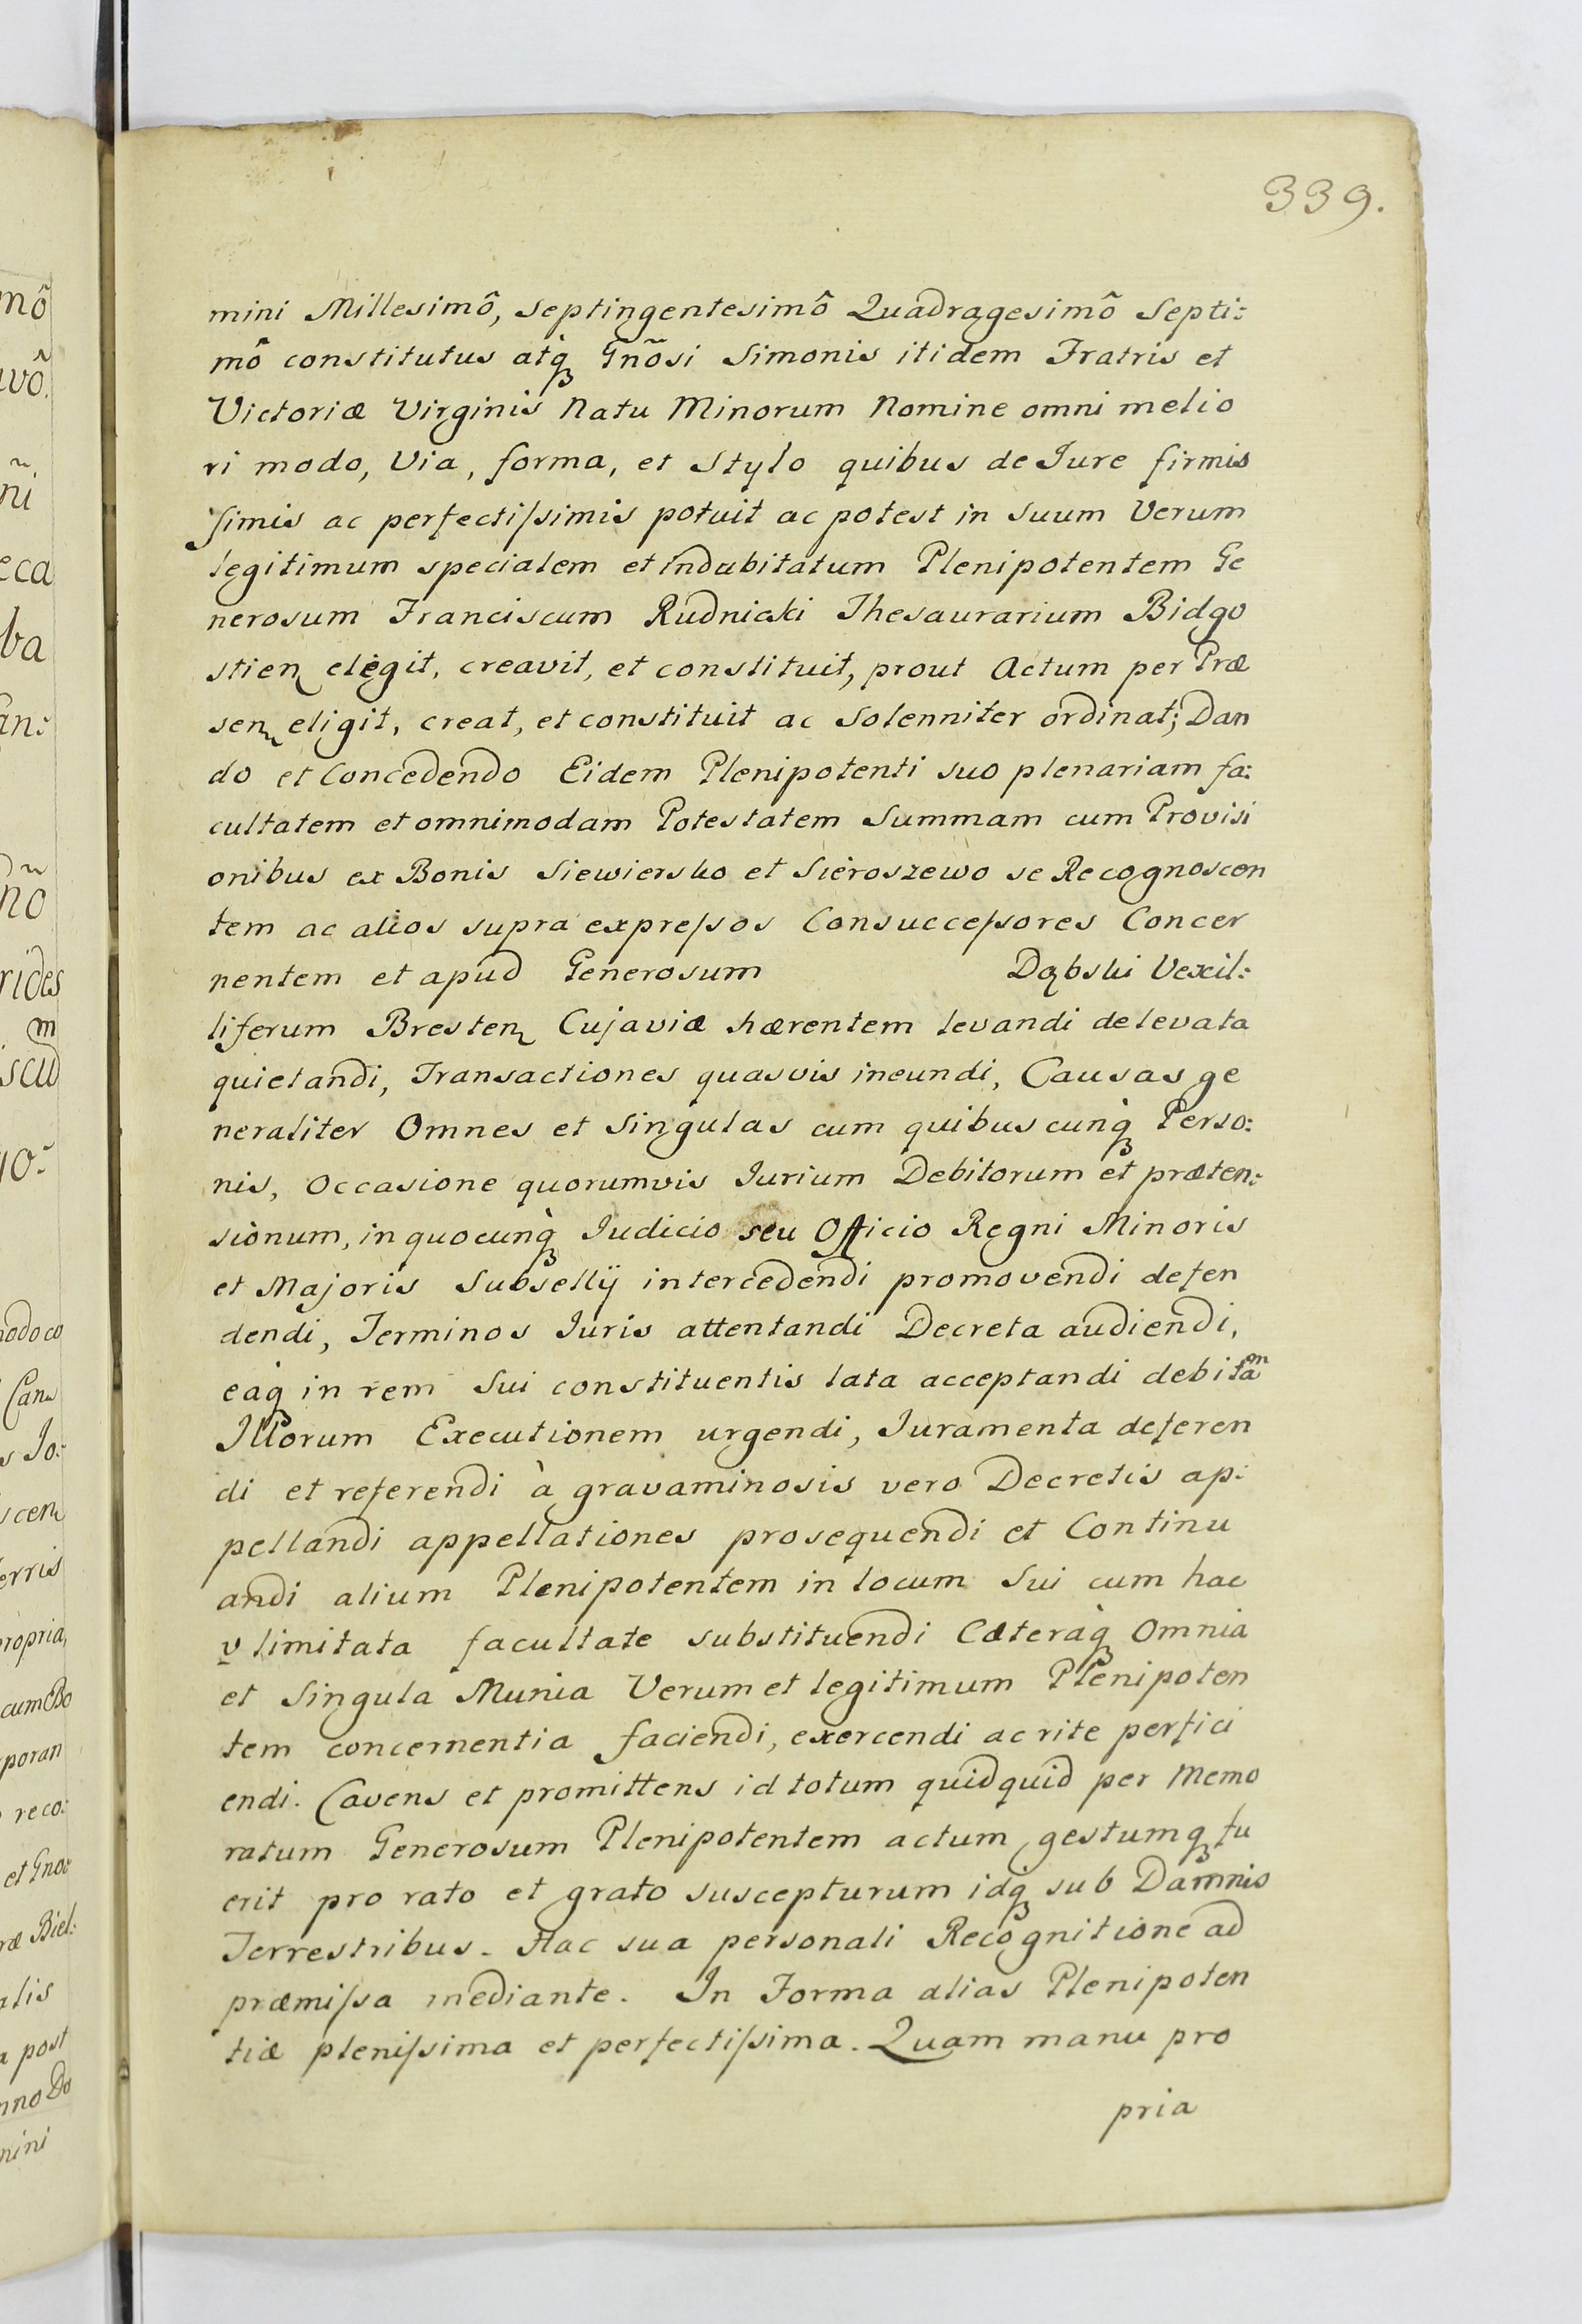 339.
mini Millesimô, Septingentesimô Quadragesimô Septi:
mô constitutus atq̀ꝫ Gnõsi Simonis itidem Fratris et
Victoriæ Virginis Natu Minorum Nomine omni melio
ri modo, Via, forma, et Stylo quibus de Jure firmis
simis ac perfectiſsimis potuit ac potest in suum Verum
legitimum specialem et indubitatum Plenipotentem Ge
nerosum Franciscum Rudnicki Thesaurarium Bidgo
stien elègit, creavit, et constituit, prout Actum per Præ
sen eligit, creat, et constituit ac Solenniter ordinat; Dan
do et Concedendo Eidem Plenipotenti suo plenariam fa:
cultatem et omnimodam Potestatem Summam cum Provisi
onibus ex Bonis Siewiersko et Sieroszewo se Recognoscen
tem ac alios supra expreſsos Consucceſsores Concer
nentem et apud Generosum Dąbski Vexil:
liferum Bresten Cujaviæ hærentem levandi de levata
quietandi, Transactiones quasvis ineundi, Causas ge
neraliter Omnes et Singulas cum quibuscunq̀ꝫ Perso:
nis, Occasione quorumvis Jurium Debitorum et præten:
sionum, in quocunq̀ꝫ Judicio seu Officio Regni Minoris
et Majoris Subsellÿ intercedendi promovendi defen
dendi, Terminos Juris attentandi Decreta audiendi,
eaq̀ꝫ in rem Sui constituentis lata acceptandi debitaᵐ
Illorum Executionem urgendi, Juramenta deferen
di et referendi à gravaminosis vero Decretis ap:
pellandi appellationes prosequendi et Continu
andi alium Plenipotentem in locum Sui cum hac
v limitata facultate substituendi Cæteraq̀ꝫ Omnia
et Singula Munia Verum et legitimum Plenipoten
tem concernentia faciendi, exercendi ac rite perfici
endi. Cavens et promittens id totum quidquid per Memo
ratum Generosum Plenipotentem actum gestumqꝫ fu
erit pro rato et grato suscepturum idqꝫ sub Damnis
Terrestribus. Hac sua personali Recognitione ad
præmiſsa mediante. In Forma alias Plenipoten
tiæ pleniſsima et perfectiſsima. Quam manu pro
pria